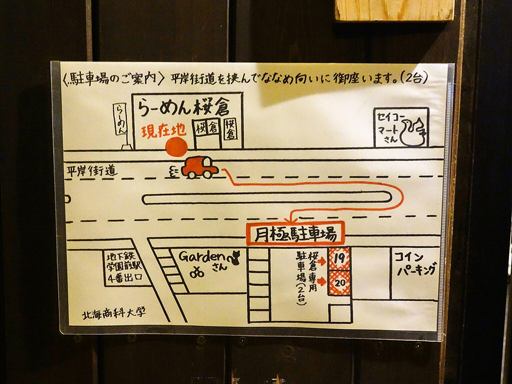 〈駐車場のご案内〉 平岸街道を挟んでななめ向いに御座います。(2台)
らーめん
らーめん桜倉
現在地
桜倉
桜倉
セイコー
マート
さん
平岸街道
月極駐車場
地下鉄
学園前駅
4番出口
Garden
さん
桜倉専用
駐車場(2台)
19
20
コイン
パーキング
北海商科大学